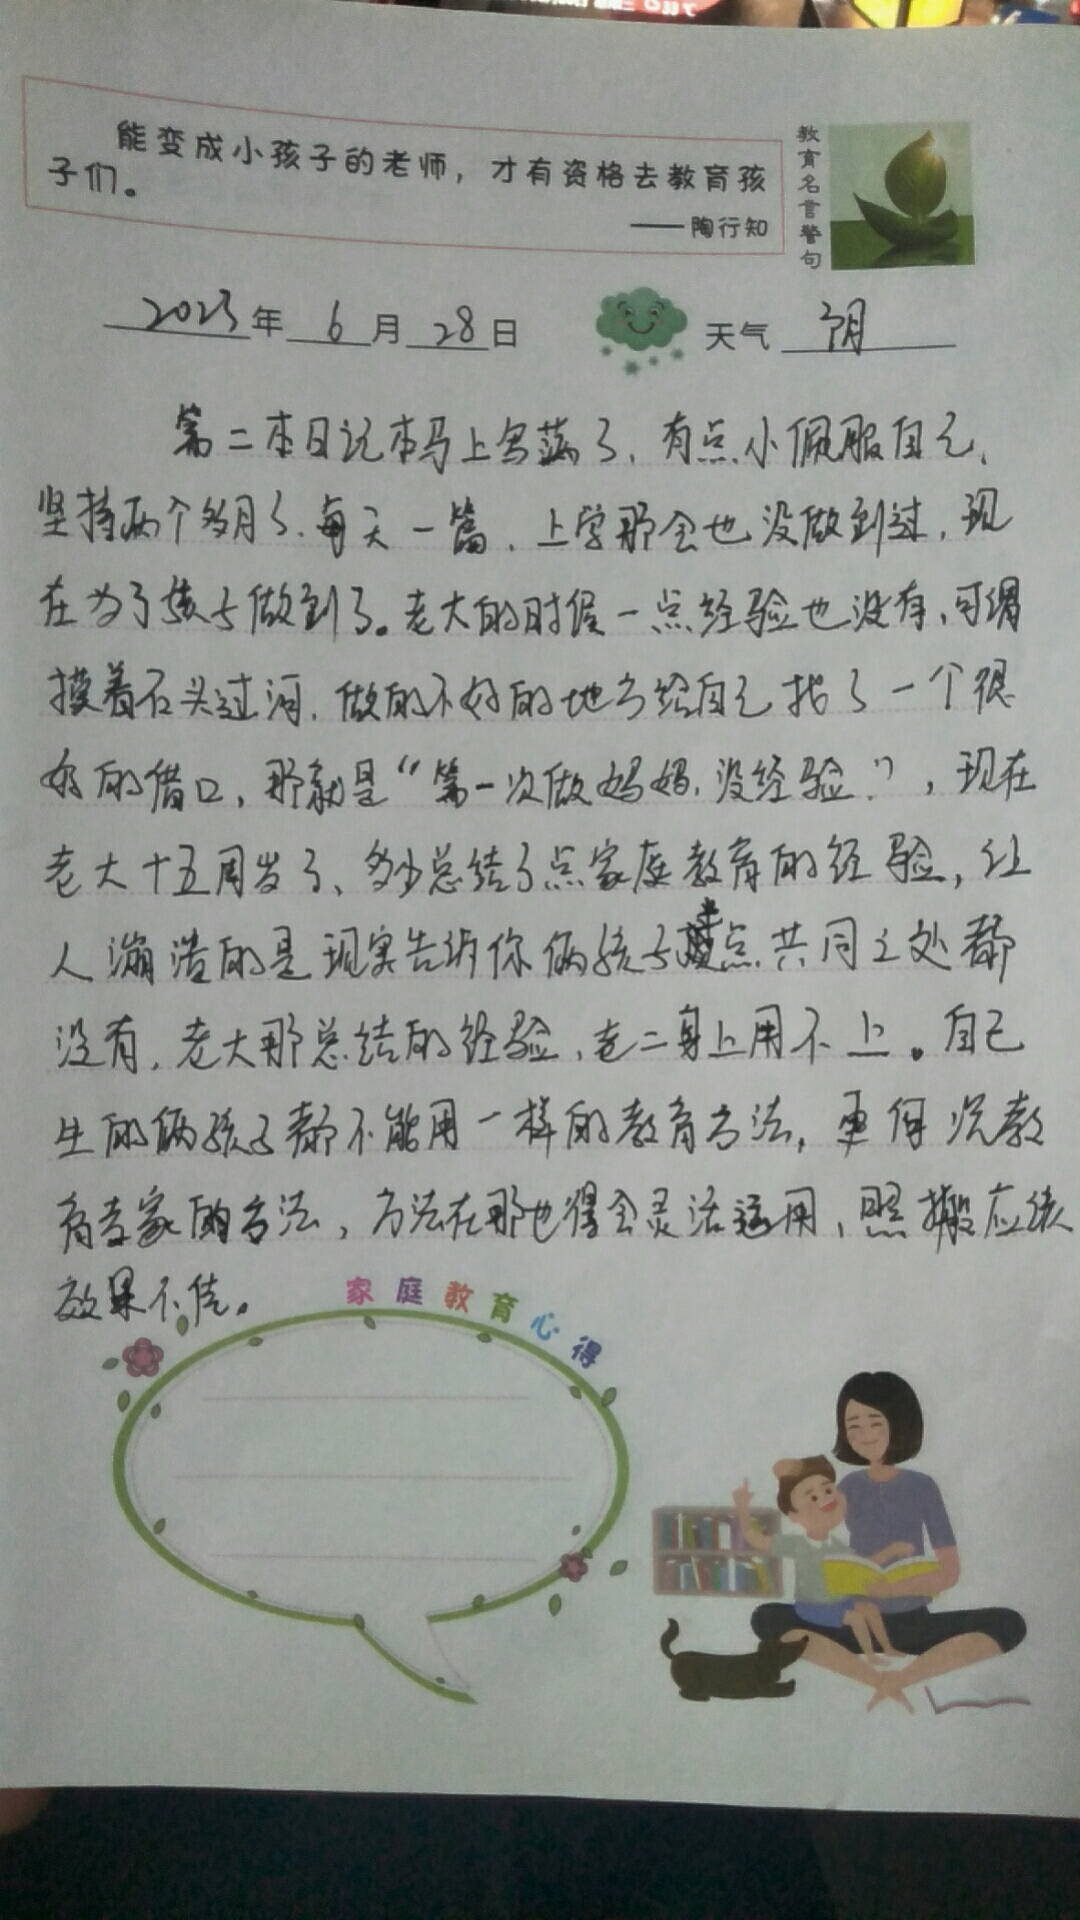 能变成小孩子的老师，才有资格去教育孩
子们。
——陶行知
教育名言警句
2023年 6月 28日 天气 阴
第二本日记本马上写满了，有点小佩服自己，
坚持两个多月了，每天一篇，上学那会也没做到过，现
在为了孩子做到了。老大的时候一点经验也没有，可谓
摸着石头过河，做的不好的地方给自己找了一个很
好的借口，那就是“第一次做妈妈，没经验？”，现在
老大十五周岁了、多少总结了点家庭教育的经验，让
人崩溃的是现实告诉你俩孩子半点共同之处都
没有，老大那总结的经验，老二身上用不上。自己
生的俩孩子都不能用一样的教育方法，更何况教
育专家的方法，方法在那也得会灵活运用，照搬应该
效果不佳。
家庭教育心得